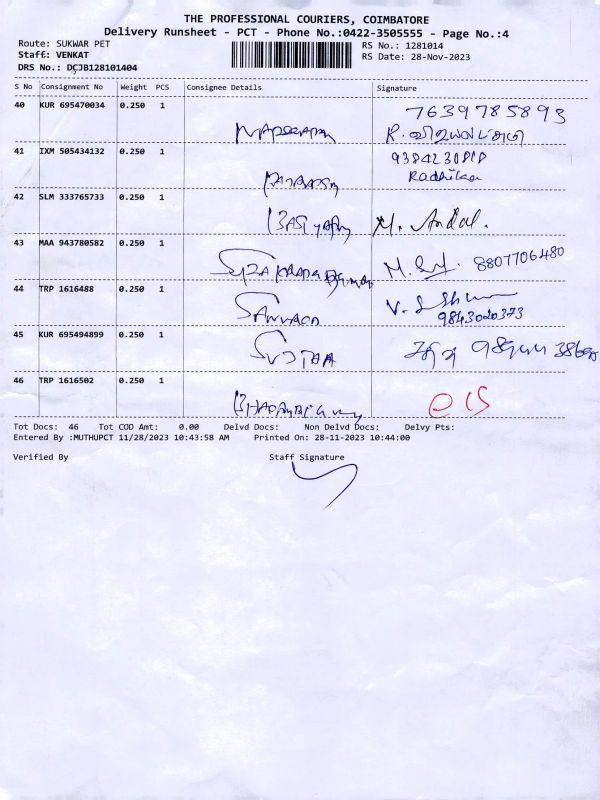 THE PROFESSIONAL COURIERS, COIMBATORE
Delivery Runsheet - PCT - Phone No.:0422-3505555 - Page No.:4
Route: SUKWAR PET
RS No.: 1281014
Staff: VENKAT
RS Date: 28-Nov-2023
DRS No.: DCJB128101404
S No Consignment No Weight PCS Consignee Details Signature
40 KUR 695470034 0.250 1 7639785893
41 IXM 505434132 0.250 1
Radhika
42 SLM 333765733 0.250 1 M. Andal.
43 MAA 943780582 0.250 1 8807706480
44 TRP 1616488 0.250 1
9843020373
45 KUR 695494899 0.250 1
46 TRP 1616502 0.250 1
Tot Docs: 46 Tot COD Amt: 0.00 Delvd Docs: Non Delvd Docs: Delvy Pts:
Entered By :MUTHUPCT 11/28/2023 10:43:58 AM Printed On: 28-11-2023 10:44:00
Verified By Staff Signature